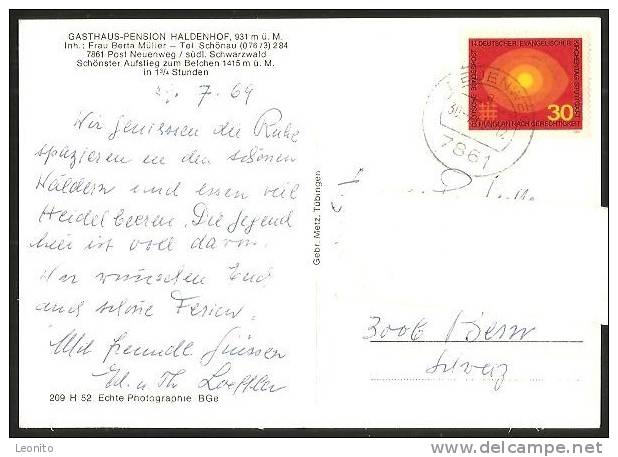 GASTHAUS-PENSION HALDENHOF, 931 m ü. M.
Inh.: Frau Berta Müller – Tel. Schönau (07673) 284
7861 Post Neuenweg / südl. Schwarzwald
Schönster Aufstieg zum Belchen 1415 m ü. M.
in 1¾ Stunden
7. 69
Wir geniessen die Ruhe
spazieren in den schönen
Wäldern und essen viel
Heidelbeeren. Die Gegend
hier ist voll davon.
Wir wünschen Euch
auch schöne Ferien.
Mit freundl. Grüssen
Ed. u. Th. Loeffler
209 H 52 Echte Photographie BGe
Gebr. Metz, Tübingen
14. DEUTSCHER EVANGELISCHER
KIRCHENTAG STUTTGART
DEUTSCHE BUNDESPOST
30
HUNGERN NACH GERECHTIGKEIT
7861
3006 Bern
Schweiz
Leonito
www.delcampe.net